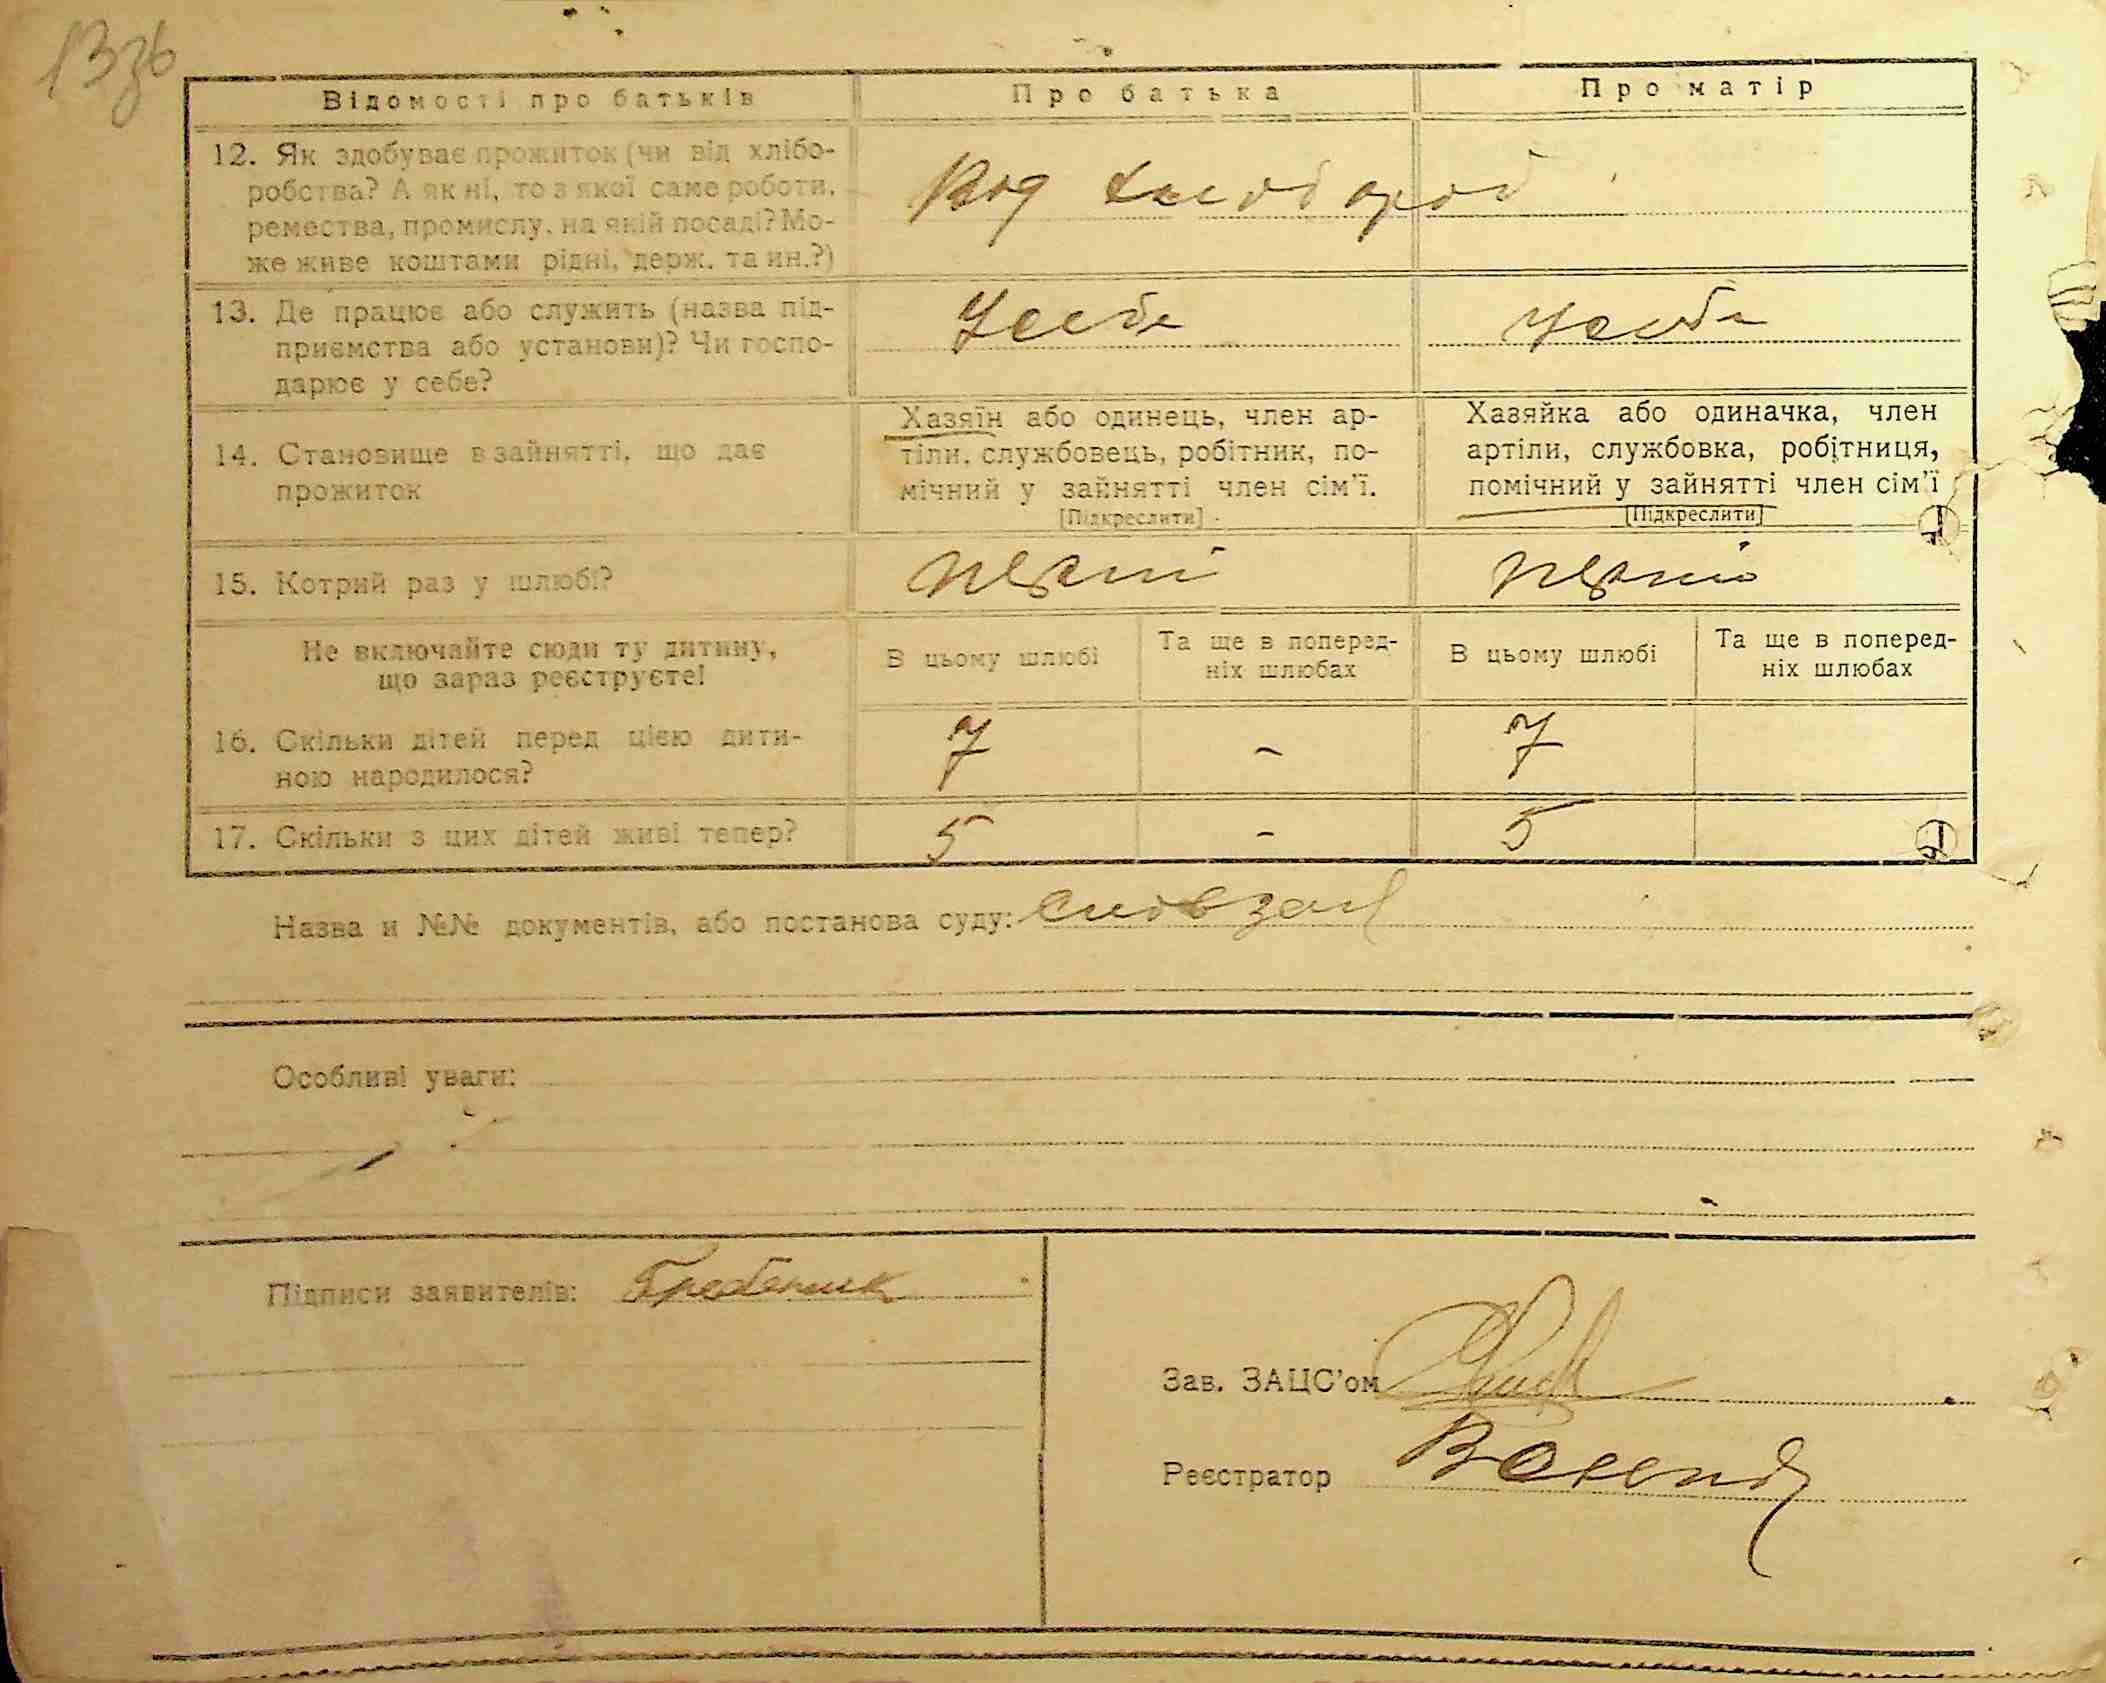 13зв
Відомості про батьків
Про батька
Про матір
12. Як здобуває прожиток (чи від хлібо-
робства? А як ні, то з якої саме роботи,
ремества, промислу, на якій посаді? Мо-
же живе коштами рідні, держ. та ин.?)
Від хлібороб
13. Де працює або служить (назва під-
приємства або установи)? Чи госпо-
дарює у себе?
У себе
У себе
14. Становище в зайнятті, що дає
прожиток
Хазяїн або одинець, член ар-
тіли, службовець, робітник, по-
мічний у зайнятті член сім'ї.
[Підкреслити]
Хазяйка або одиначка, член
артіли, службовка, робітниця,
помічний у зайнятті член сім'ї
[Підкреслити]
15. Котрий раз у шлюбі?
перший
перший
Не включайте сюди ту дитину,
що зараз реєструєте!
В цьому шлюбі
Та ще в поперед-
ніх шлюбах
В цьому шлюбі
Та ще в поперед-
ніх шлюбах
16. Скільки дітей перед цією дити-
ною народилося?
7 - 7
17. Скільки з цих дітей живі тепер?
5 - 5
Назва и №№ документів, або постанова суду:
Особливі уваги:
Підписи заявителів: Гребеник
Зав. ЗАЦС'ом
Реєстратор